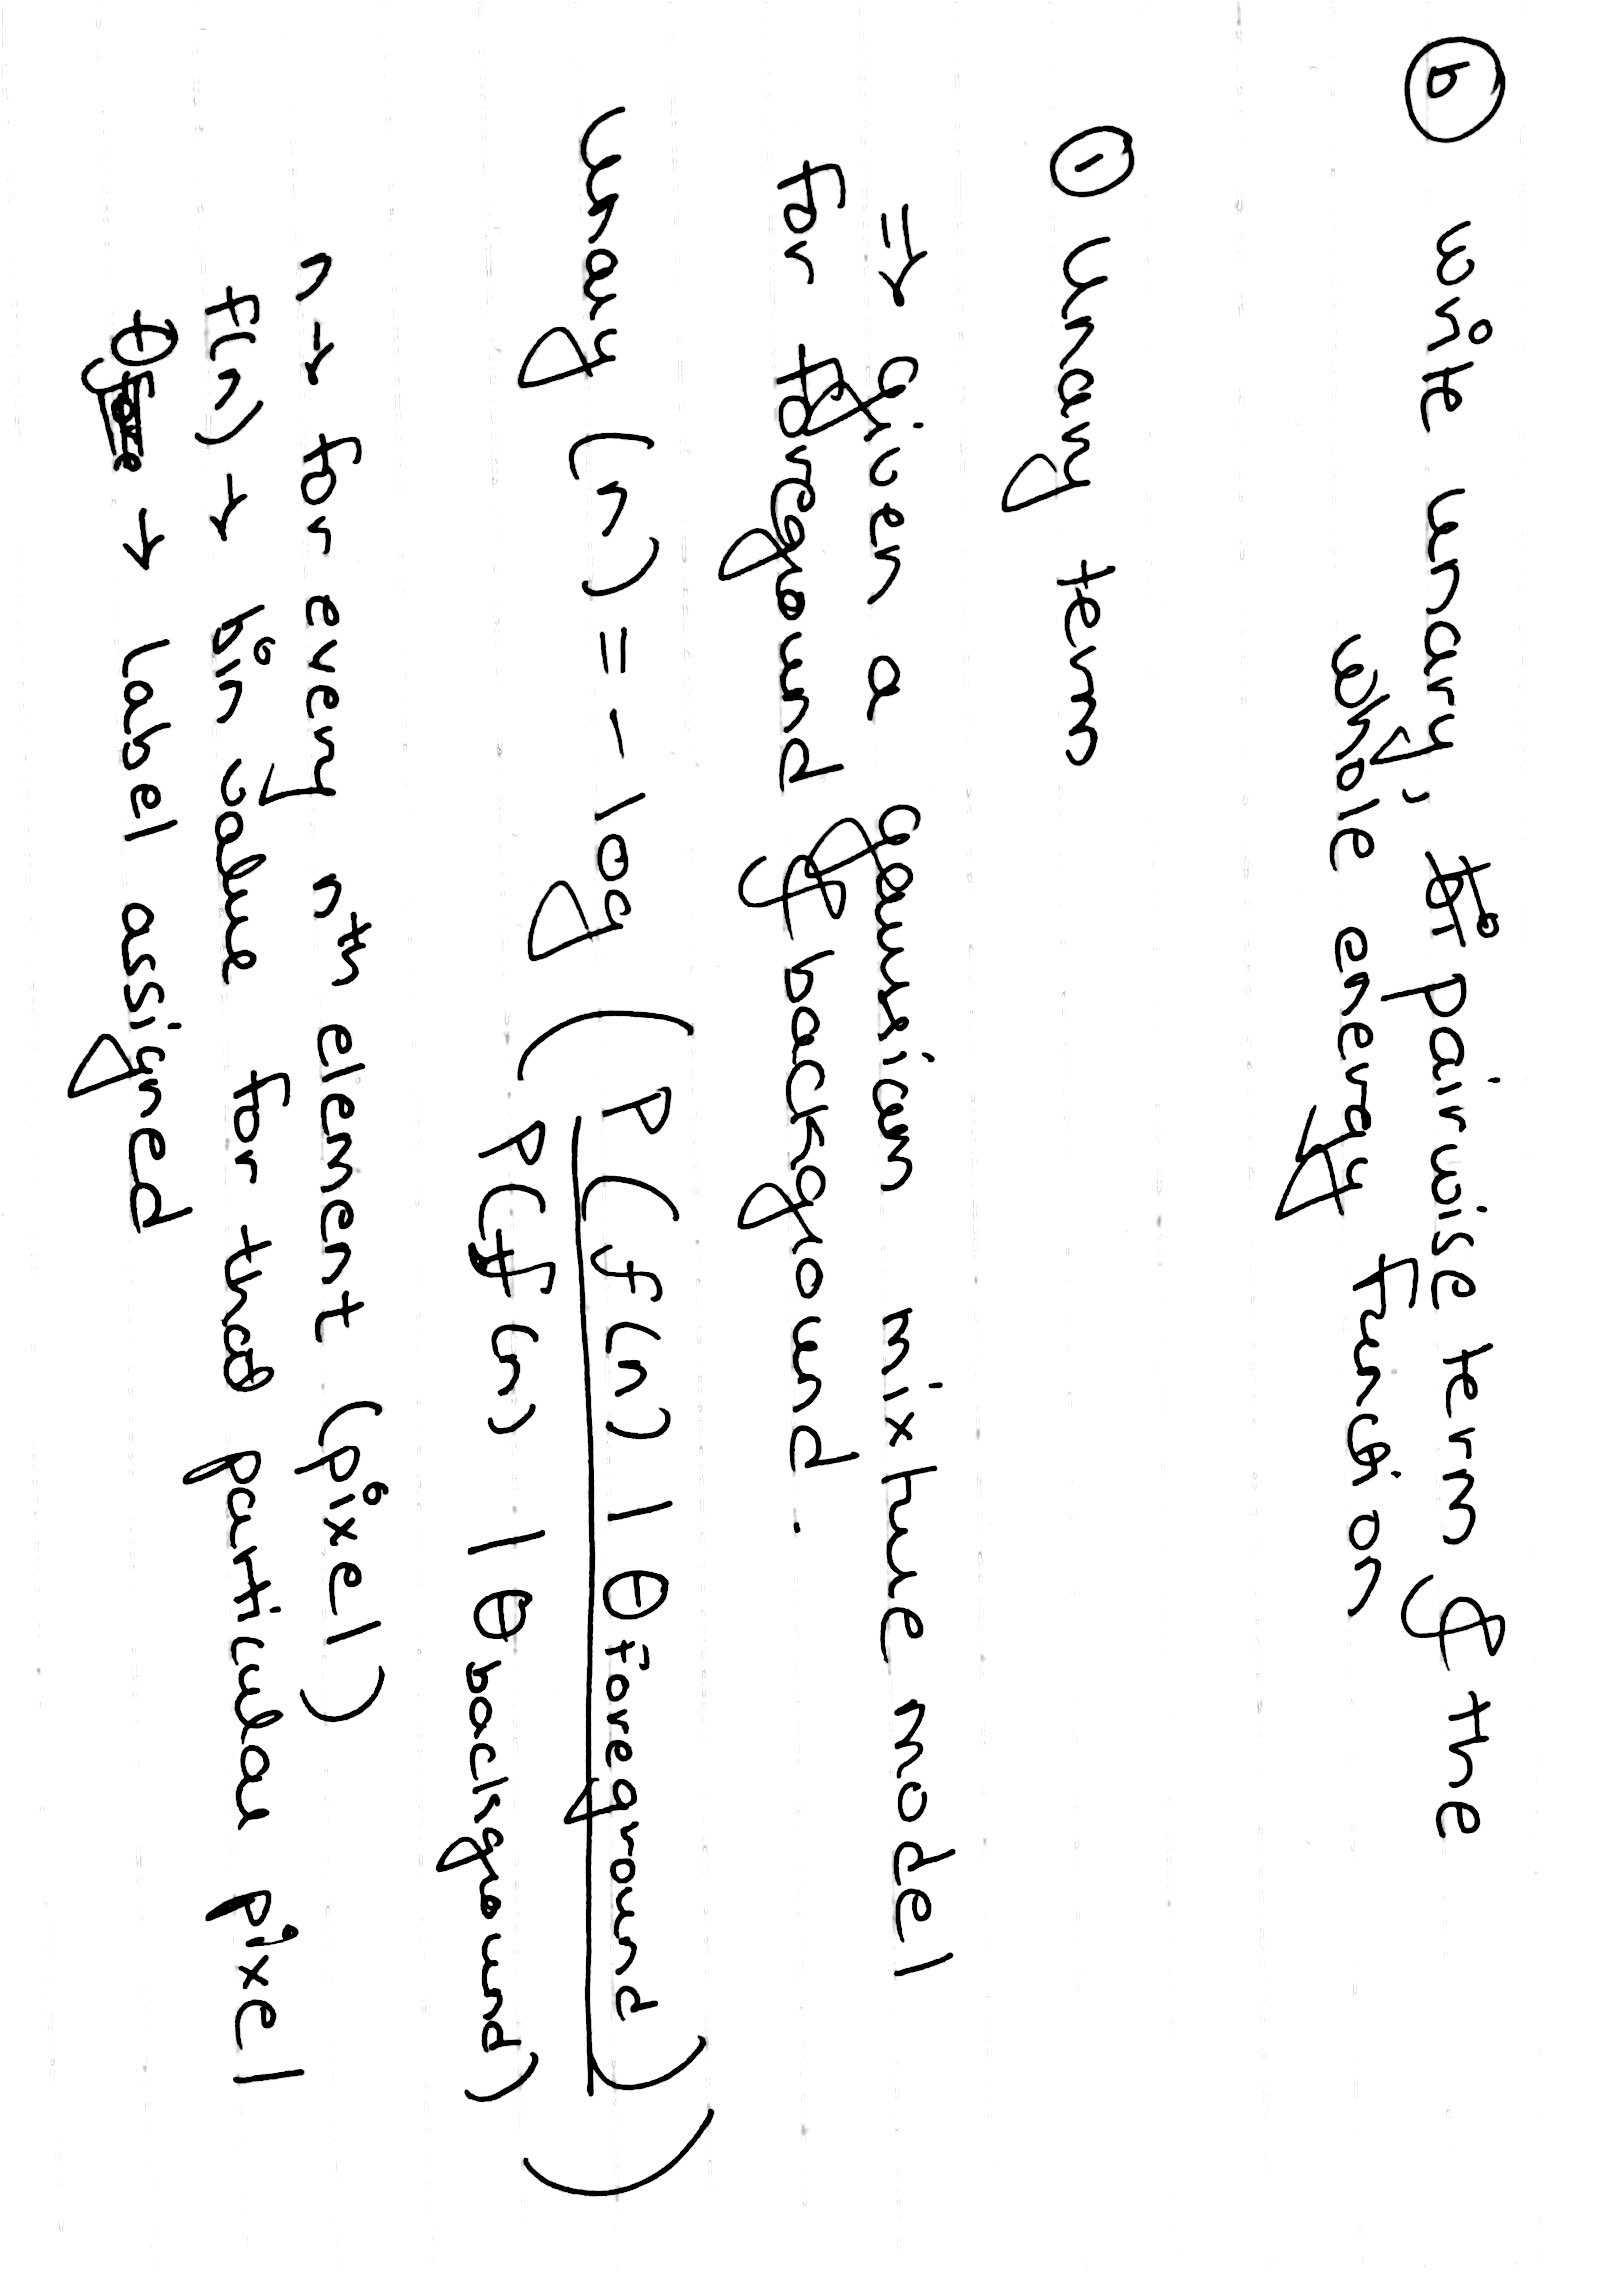 b write unary, pairwise term & the
whole energy function
1 unary term
=> given a gaussian mixture model
for foreground & background.
unary (n) = - log ( P ( f(n) | θ foreground )
P( f(n) | θ background) )
n → for every nth element (pixel)
f(n) → bin value for that particular pixel
θ → label assigned